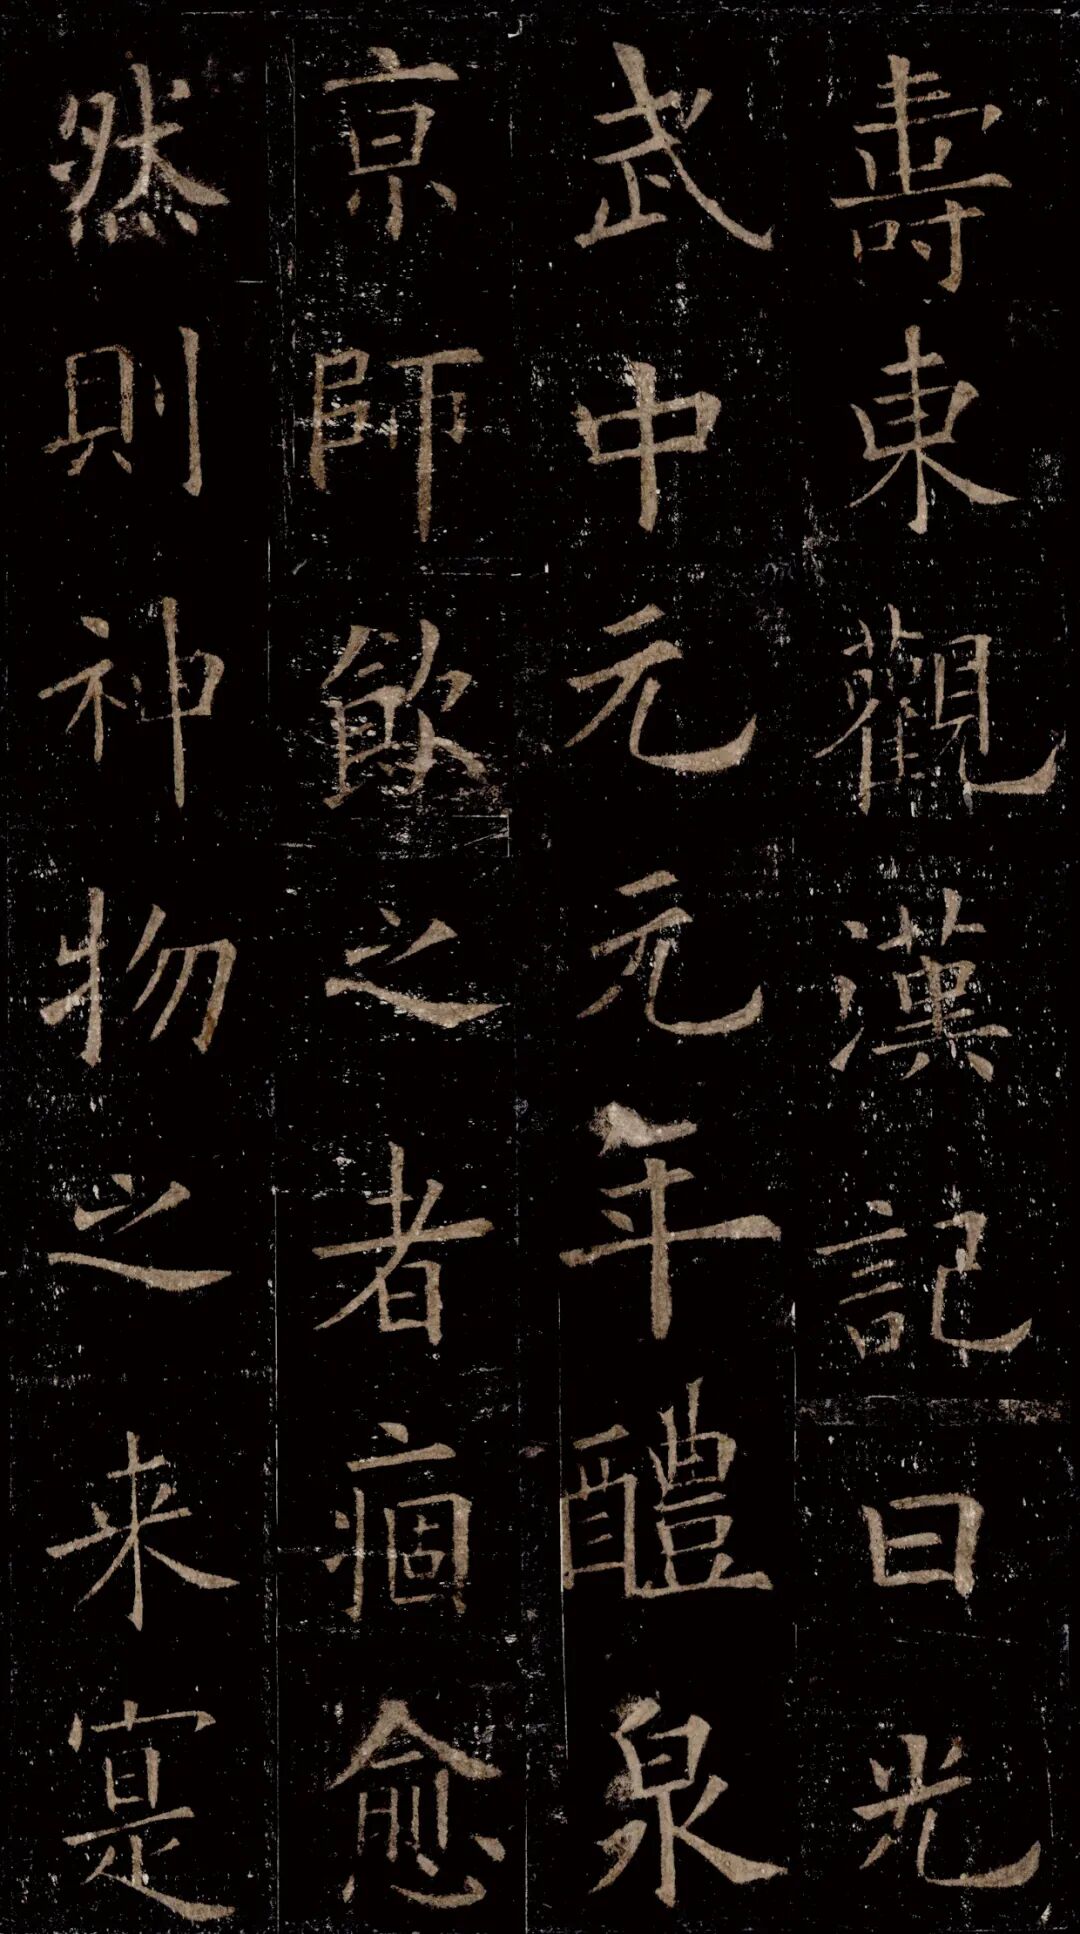 壽東觀漢記曰光
武中元元年醴泉
京師飲之者痼愈
然則神物之来寔